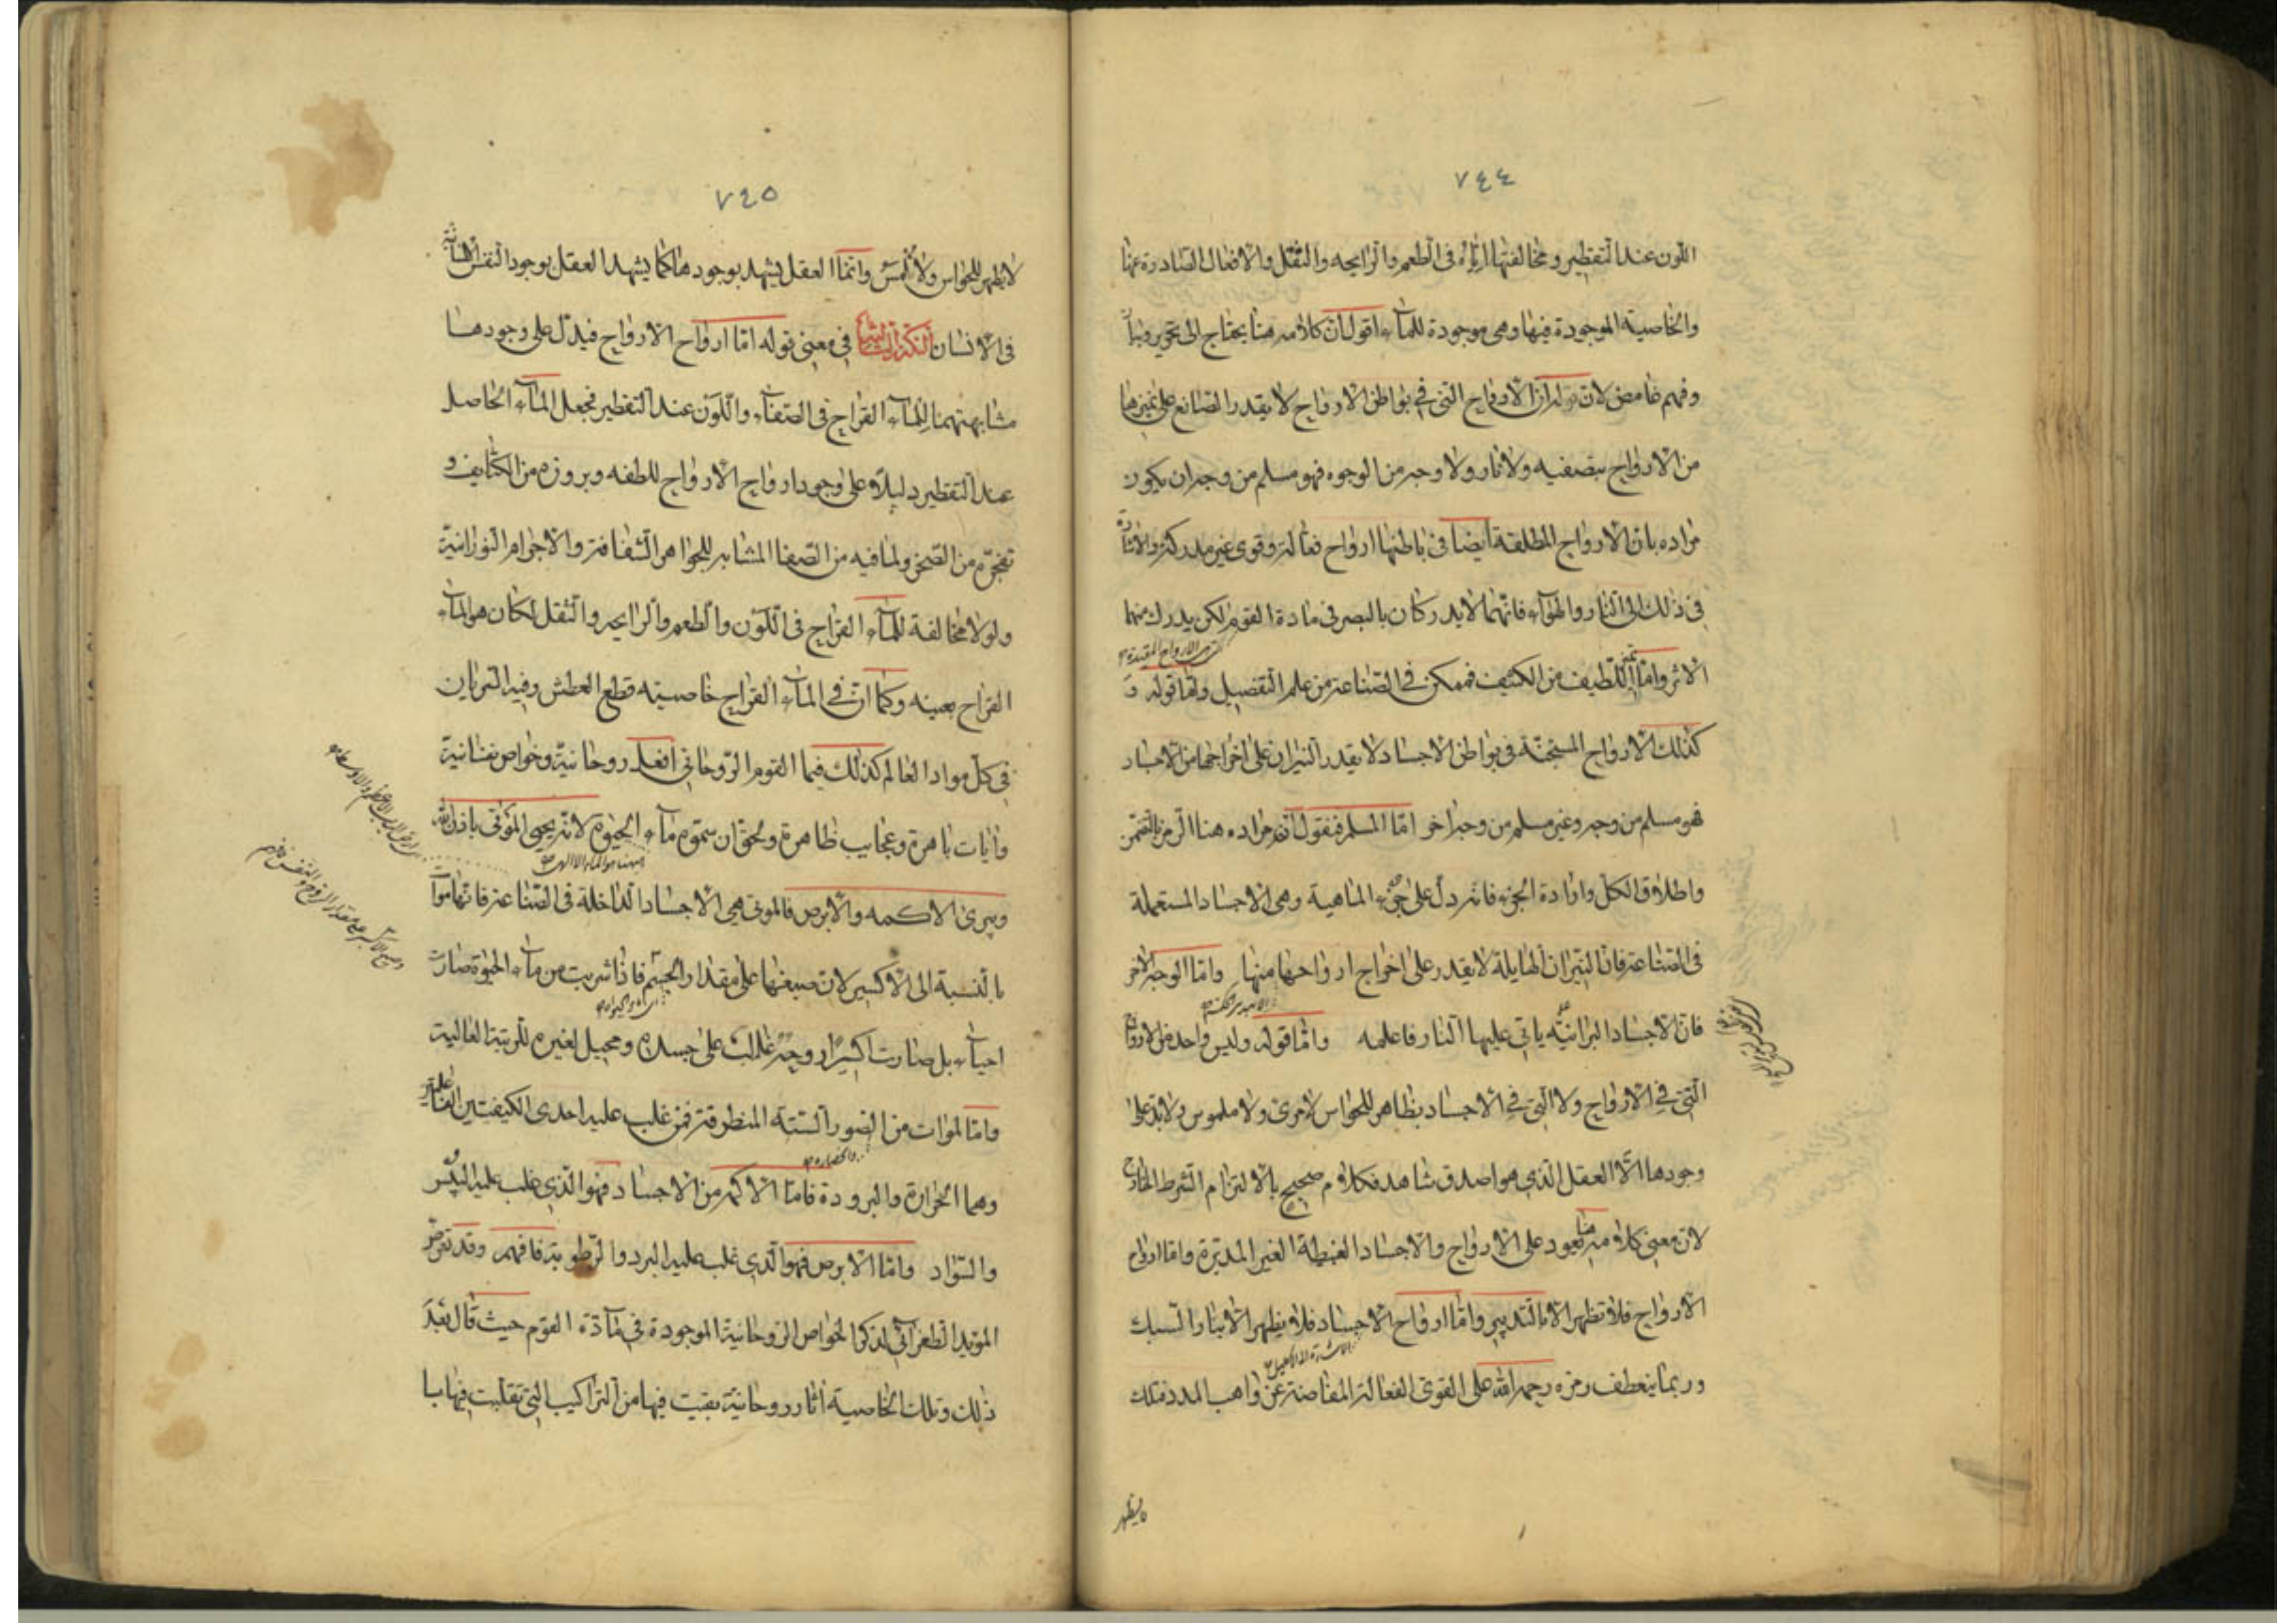 ٧٤٤
اللون عند التقطير ومخالفتها اياه فى الطعم والرايحه والثقل والافعال الصادرة عنها
والخاصية الموجودة فيها وهى موجودة للماء اقول ان كلامه هنا يحتاج الى تحرير
وفهم غامض لان قوله ان الارواح التى فى بواطن الارواح لا يقدر الصانع على تميزها
من الارواح بتصفيه ولا نار ولا وجه من الوجوه فهو مسلم من وجه ان يكون
مراده بان الارواح المطلقة ايضا فى باطنها ارواح فعاله وقوى غير مدركة والاشارة
فى ذلك الى النار والهواء فانهما لا يدركان بالبصر فى مادة القوم لكن يدرك منهما
الاثر واما اللطيف من الكثيف فممكن فى الصناعة من علم التفصيل واما قوله و
كذلك الارواح المستجنة فى بواطن الاجساد لا يقدر النيران على اخراجها من الاجساد
فهو مسلم من وجه وغير مسلم من وجه اخر اما المسلم فنقول ان مراده هنا الرمز
واطلاق الكل وارادة الجزء فانه دل على جزء الماهية وهى الاجساد المستعملة
فى الصناعة فان النيران الهايلة لا يقدر على اخراج ارواحها منها واما الوجه الاخر
فان الاجساد البرانيه ياتى عليها النار فاعلمه واما قوله وليس واحد من الارواح
التى فى الارواح ولا التى فى الاجساد بظاهر للحواس لا مرئ ولا ملموس ولا يدل على
وجودها الا العقل الذى هو اصدق شاهد فكلام صحيح بالالتزام الشرط الخارج
لان معنى كلامه هنا يعود على الارواح والاجساد الغبيطة الغير المدبرة واما ارواح
الارواح فلا تظهر الا بالتدبير واما ارواح الاجساد فلا يظهر الا بنار السبك
وربما ينعطف رمزه رحمه الله على القوى الفعاله المفاضة عن واهب المدد فتلك
٧٤٥
لا يظهر للحواس ولا تلمس وانما العقل يشهد بوجودها كما يشهد العقل بوجود النفس
فى الانسان فى معنى قوله اما ارواح الارواح فيدل على وجودها
مشابهتهما للماء القراح فى الصفاء واللون عند التقطير فجعل الماء الحاصل
عند التقطير دليلا على وجود ارواح الارواح للطفه وبروزه من الكثايف و
من الصخر ولما فيه من الصفا المشابه للجواهر الشفافة والاجرام النورانية
ولولا مخالفة للماء القراح فى اللون والطعم والرايحه والثقل لكان هو الماء
القراح بعينه وكما ان فى الماء القراح خاصيته قطع العطش وفيه السريان
فى كل مواد العالم كذلك فيما القوم الروحانى افعال روحانية وخواص نفسانية
وايات باهرة وعجايب ظاهرة وبحق ان سموه ماء الحيوة لانه يحيى الموتى باذن الله
ويبرئ الاكمه والابرص فالموتى هى الاجساد الداخلة فى الصناعة فانها موات
بالنسبة الى الاكسير لان صبغها على مقدار الجسم فاذا شربت من ماء الحيوة صارت
احياء بل صارت اكسيرا روحه غالب على جسده ومحيل لغيره للرتبة العالية
واما الموات من الصور الستة المنطرقة فمن غلب عليه احدى الكيفيتين
وهما الحرارة والبرودة فاما الاكمه من الاجساد فهو الذى غلب عليه اليبس
والسواد واما الابرص فهو الذى غلب عليه البرد والرطوبة فافهم وقد تعرض
المؤيد الطغرائى لذكر الخواص الروحانية الموجودة فى مادة القوم حيث قال بعد
ذلك وتلك الخاصية اثار روحانية بقيت فيها من التراكيب التى تقلبت فيها